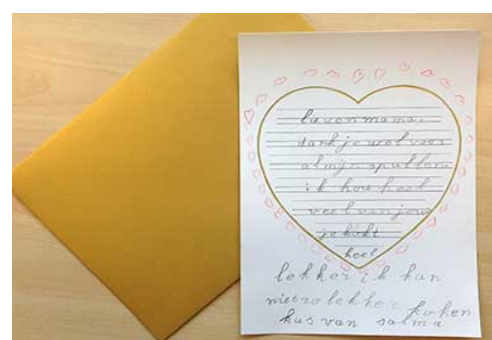 lieven mama.
dank je wel voor
al mijn spullen
ik hou heel
veel van jouw
je kokt
heel
lekker ik kan
niet zo lekker koken
kus van salma